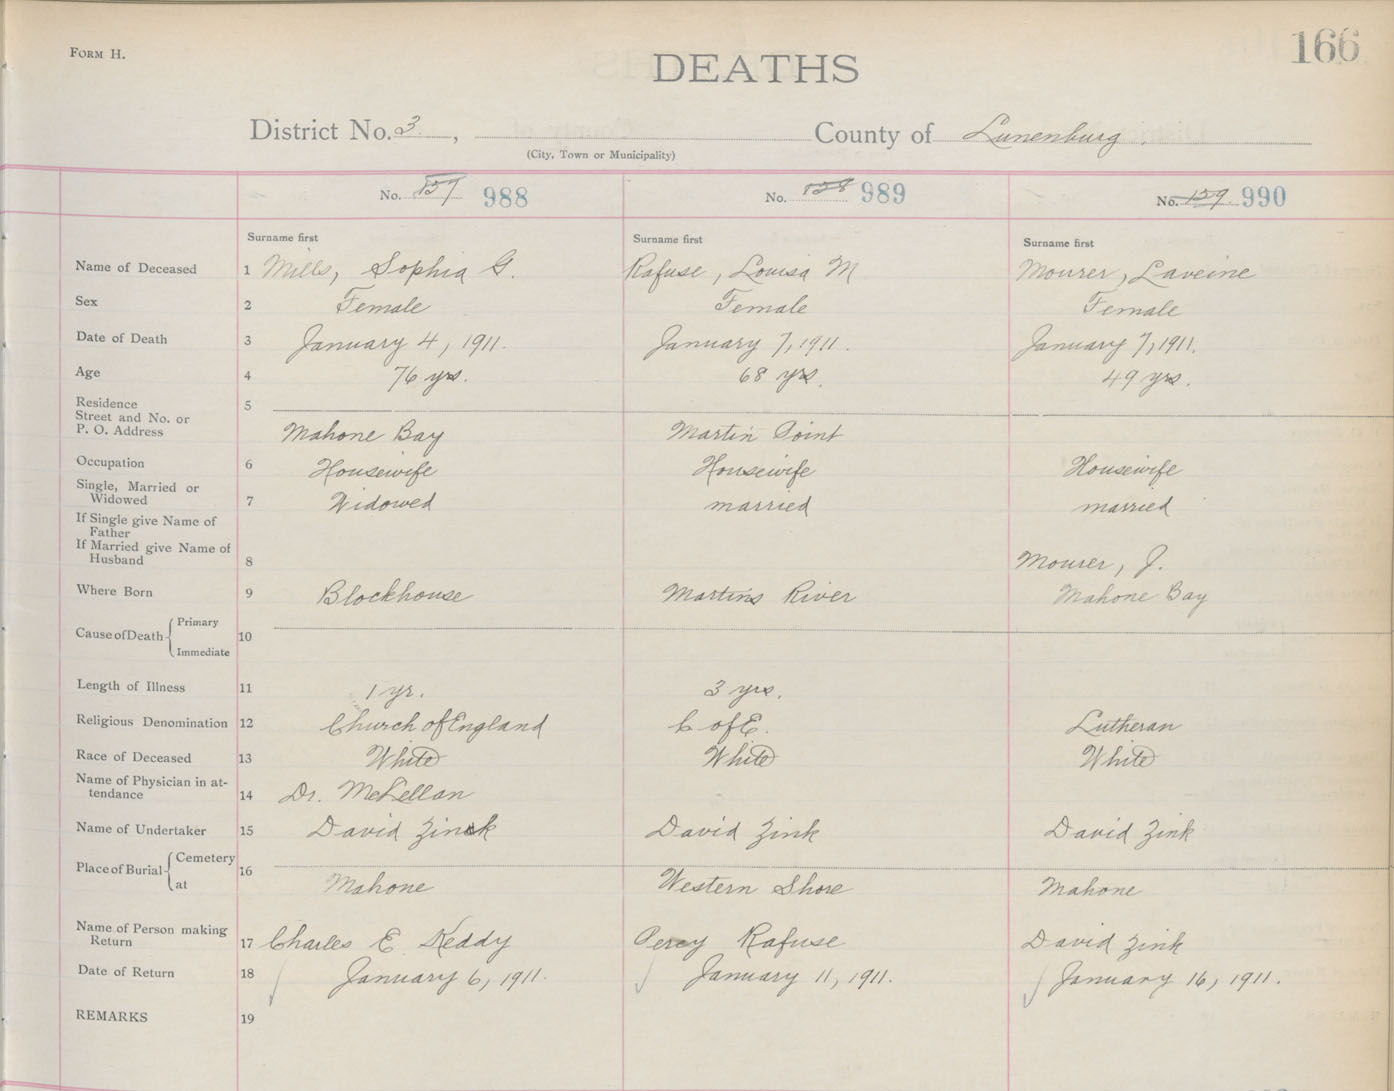 FORM H.
166
DEATHS
District No. 3 , County of Lunenburg
(City, Town or Municipality)
No. 157 988 No. 158 989 No. 159 990
Surname first Surname first Surname first
Name of Deceased 1 Mills, Sophia G. Rafuse, Louisa M Mourer, Laveine
Sex 2 Female Female Female
Date of Death 3 January 4, 1911. January 7, 1911. January 7, 1911.
Age 4 76 yrs. 68 yrs. 49 yrs.
Residence 5
Street and No. or
P. O. Address Mahone Bay Martin Point
Occupation 6 Housewife Housewife Housewife
Single, Married or
Widowed 7 Widowed married married
If Single give Name of
Father
If Married give Name of
Husband 8 Mourer, J.
Where Born 9 Blockhouse Martins River Mahone Bay
Cause of Death Primary
10
Immediate
Length of Illness 11 1 yr. 3 yrs.
Religious Denomination 12 Church of England C of E. Lutheran
Race of Deceased 13 White White White
Name of Physician in at-
tendance 14 Dr. McLellan
Name of Undertaker 15 David Zinck David Zink David Zink
Place of Burial Cemetery 16
at Mahone Western Shore Mahone
Name of Person making
Return 17 Charles E Keddy Percy Rafuse David Zink
Date of Return 18 January 6, 1911. January 11, 1911. January 16, 1911.
REMARKS 19